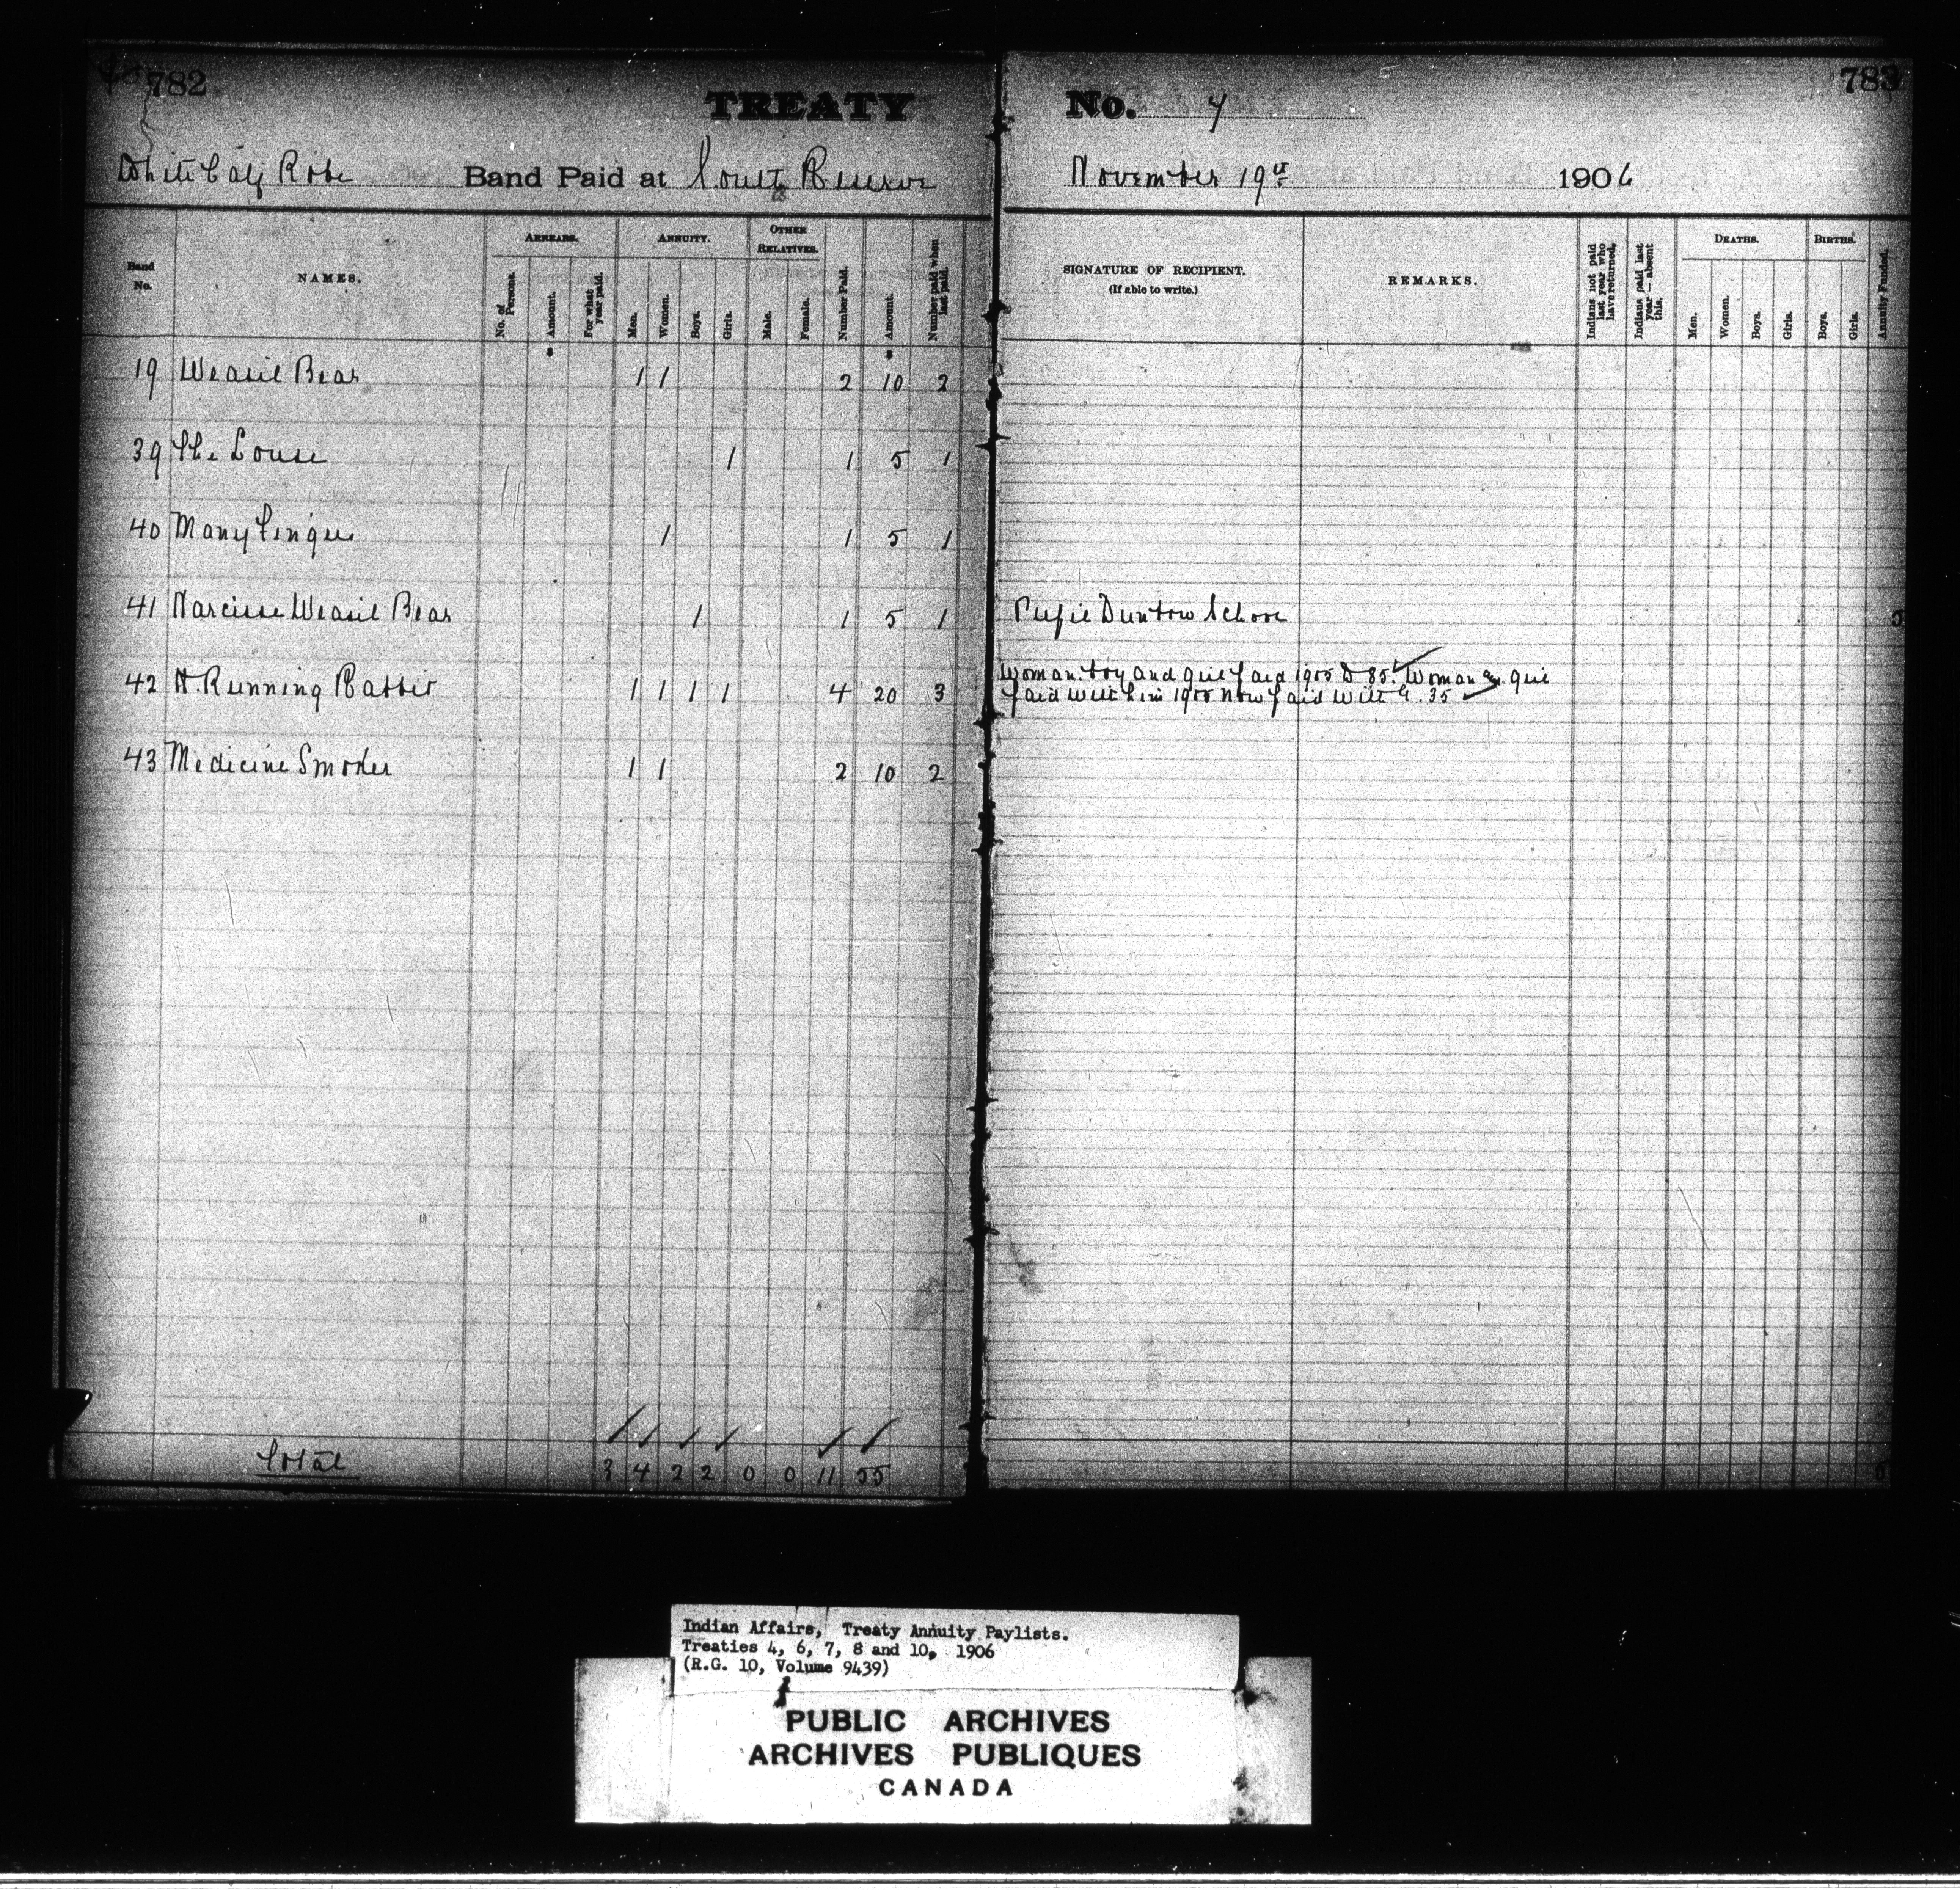 782
TREATY No. 7
783
White Calf Robe Band Paid at South Reserve November 19th 1906
Band No. NAMES. ARREARS. No. of Persons. Amount. For what year paid. ANNUITY. Men. Women. Boys. Girls. OTHER RELATIVES. Male. Female. Number Paid. Amount. Number paid when last paid. SIGNATURE OF RECIPIENT. (If able to write.) REMARKS. Indians not paid last year who have returned. Indians paid last year — absent this. DEATHS. Men. Women. Boys. Girls. BIRTHS. Boys. Girls. Annuity Funded.
19 Weasil Bear 1 1 2 10 2
39 The Louse 1 1 5 1
40 Many Fingers 1 1 5 1
41 Narcisse Weasil Bear 1 1 5 1 Pupil Dunbow School 5
42 A. Running Rabbit 1 1 1 1 4 20 3 Woman boy and girl paid 1905 D 85. Woman girl
paid with him 1905 now paid with G. 35
43 Medicine Smoker 1 1 2 10 2
Total 3 4 2 2 0 0 11 55 5
Indian Affairs, Treaty Annuity Paylists.
Treaties 4, 6, 7, 8 and 10, 1906
(R.G. 10, Volume 9439)
PUBLIC ARCHIVES
ARCHIVES PUBLIQUES
CANADA